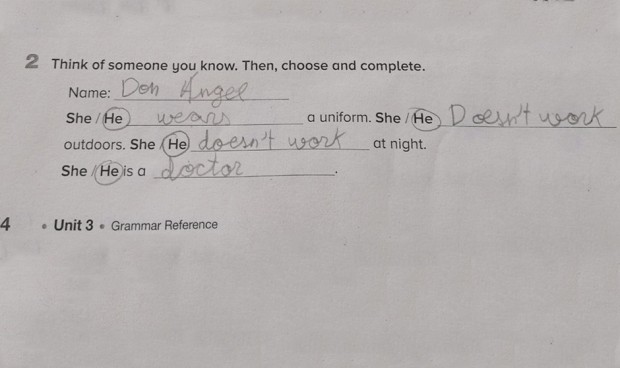 2 Think of someone you know. Then, choose and complete.
Name: Don Angel
She / He wears a uniform. She / He Doesn't work
outdoors. She / He doesn't work at night.
She / He is a doctor.
4 • Unit 3 • Grammar Reference